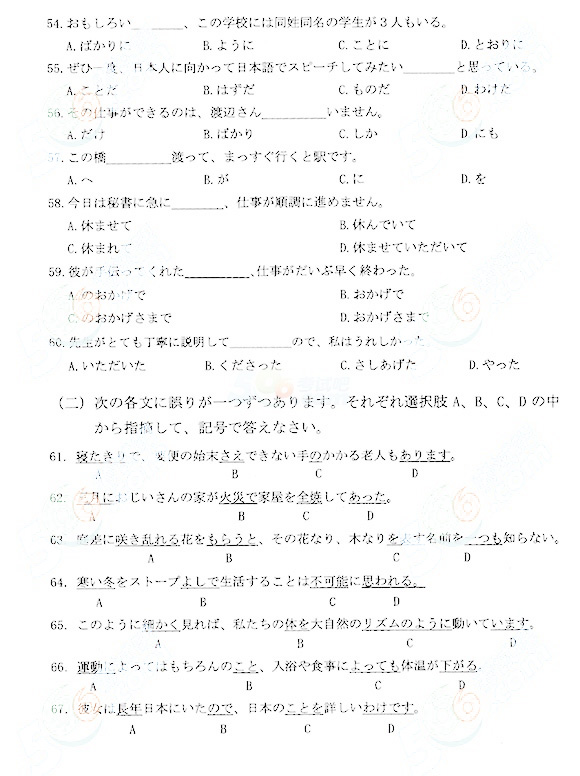 54. おもしろい________、この学校には同姓同名の学生が3人もいる。
A.ばかりに B.ように C.ことに D.とおりに
55. ぜひ一度、日本人に向かって日本語でスピーチしてみたい________と思っている。
A.ことだ B.はずだ C.ものだ D.わけだ
56. その仕事ができるのは、渡辺さん__________いません。
A.だけ B.ばかり C.しか D.にも
57. この橋__________渡って、まっすぐ行くと駅です。
A.へ B.が C.に D.を
58. 今日は秘書に急に________、仕事が順調に進めません。
A.休ませて B.休んでいて
C.休まれて D.休ませていただいて
59. 彼が手伝ってくれた__________、仕事がだいぶ早く終わった。
A.のおかげで B.おかげで
C.のおかげさまで D.おかげさまで
60. 先生がとても丁寧に説明して__________ので、私はうれしかった
A.いただいた B.くださった C.さしあげた D.やった
（二）次の各文に誤りが一つずつあります。それぞれ選択肢 A、B、C、D の中
から指摘して、記号で答えなさい。
61. 寝たきりで、便の始末さえできない手のかかる老人もあります。
A B C D
62. 三月におじいさんの家が火災で家屋を全焼してあった。
A B C D
63. に咲き乱れる花をもらうと、その花なり、木なりを 名前を一つも知らない。
A B C D
64. 寒い冬をストーブよしで生活することは不可能に思われる。
A B C D
65. このように細かく見れば、私たちの体を大自然のリズムのように動いています。
A B C D
66. 運動によってはもちろんのこと、入浴や食事によっても体温が下がる.
A B C D
67. 彼女は長年日本にいたので、日本のことを詳しいわけです。
A B C D